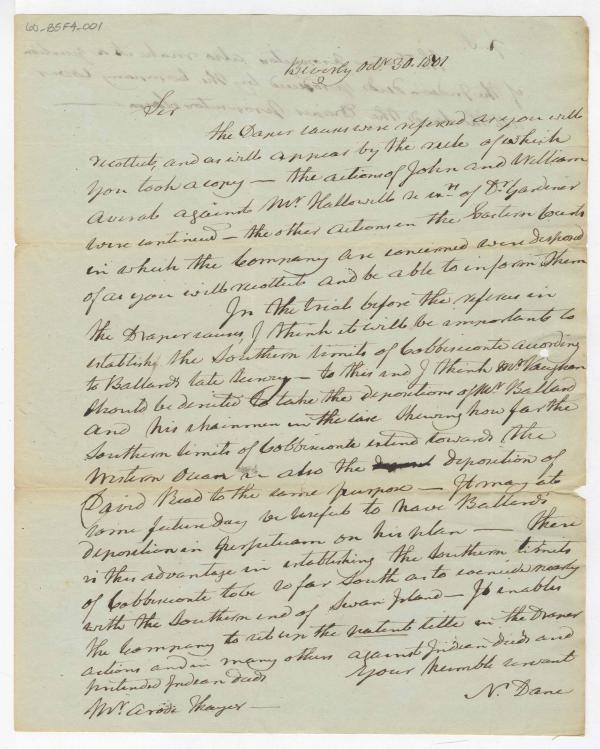 60-85F4-001
Beverly Octr 30. 1801
Sir
the Draper causes were referred as you will
recollect, and as will appear by the rule of which
you took a copy — the actions of John and William
Averah against Mr Hallowell & in rt of Dr Gardiner
were continued — the other actions in the Eastern Courts
in which the Company are concerned were disposd
of as you will recollect and be able to inform them
In the trial before the referees in
the Draper causes, I think it will be important to
establish the Southern limits of Cobbisconte according
to Ballards late survey — to this end I think Mr Vaughan
should be directed to take the depositions of Mr Ballard
and his chainmen in the case shewing how far the
Southern limits of Cobbisconte extend towards the
Western Ocean & also the deposition of
David Read to the same purpose — It may at
some future day be useful to have Ballards
deposition in perpetuam on his plan — there
is this advantage in establishing the Southern limits
of Cobbisconte to be so far South as to coincide nearly
with the Southern end of Swan Island — It enables
the Company to set up the patent title in the Draper
actions and in many others against Indian deeds and
pretended Indian deeds
Your humble servant
N. Dane
Mr Arodi Thayer —